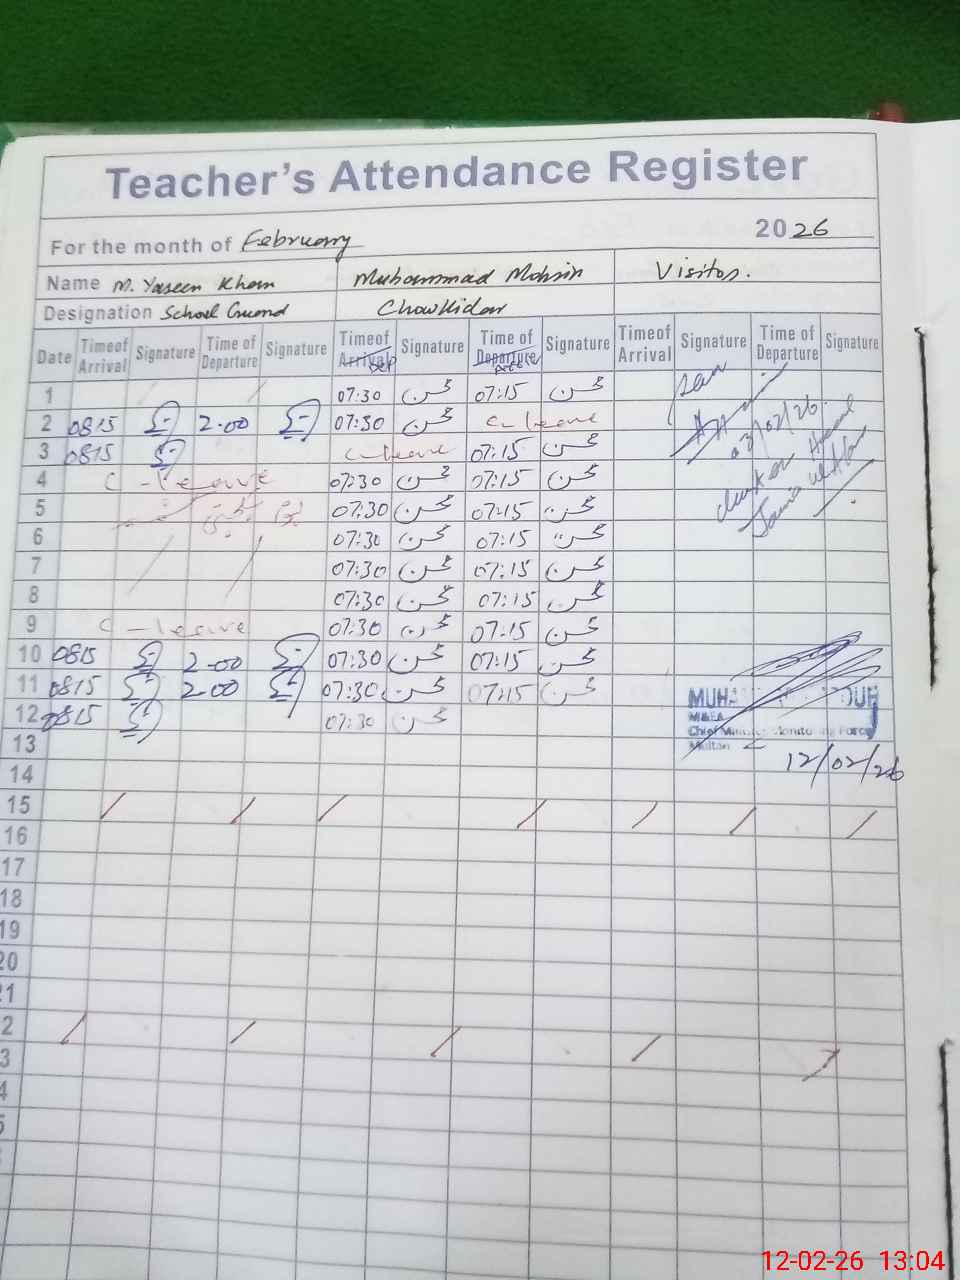 Teacher's Attendance Register
For the month of February 2026
Name M. Yaseen Khan Muhammad Mohsin Visitor.
Designation School Guard Chowkidar
Date Time of Arrival Signature Time of Departure Signature Time of Arrival Dep Signature Time of Departure Signature Time of Arrival Signature Time of Departure Signature
1 07:30 محسن 07:15 محسن
2 0815 2.00 07:30 محسن C-leave
3 0815 C-leave 07:15 محسن
4 C-leave 07:30 محسن 07:15 محسن
5 07:30 محسن 07:15 محسن
6 07:30 محسن 07:15 محسن
7 07:30 محسن 07:15 محسن
8 07:30 محسن 07:15 محسن
9 C-leave 07:30 محسن 07:15 محسن
10 0815 2.00 07:30 محسن 07:15 محسن
11 0815 2.00 07:30 محسن 07:15 محسن
12 0815 07:30 محسن
03/02/26.
M&EA
Chief Monitoring Force
Multan
12/02/26
13
14
15
16
17
18
19
20
21
2
3
4
5
12-02-26 13:04